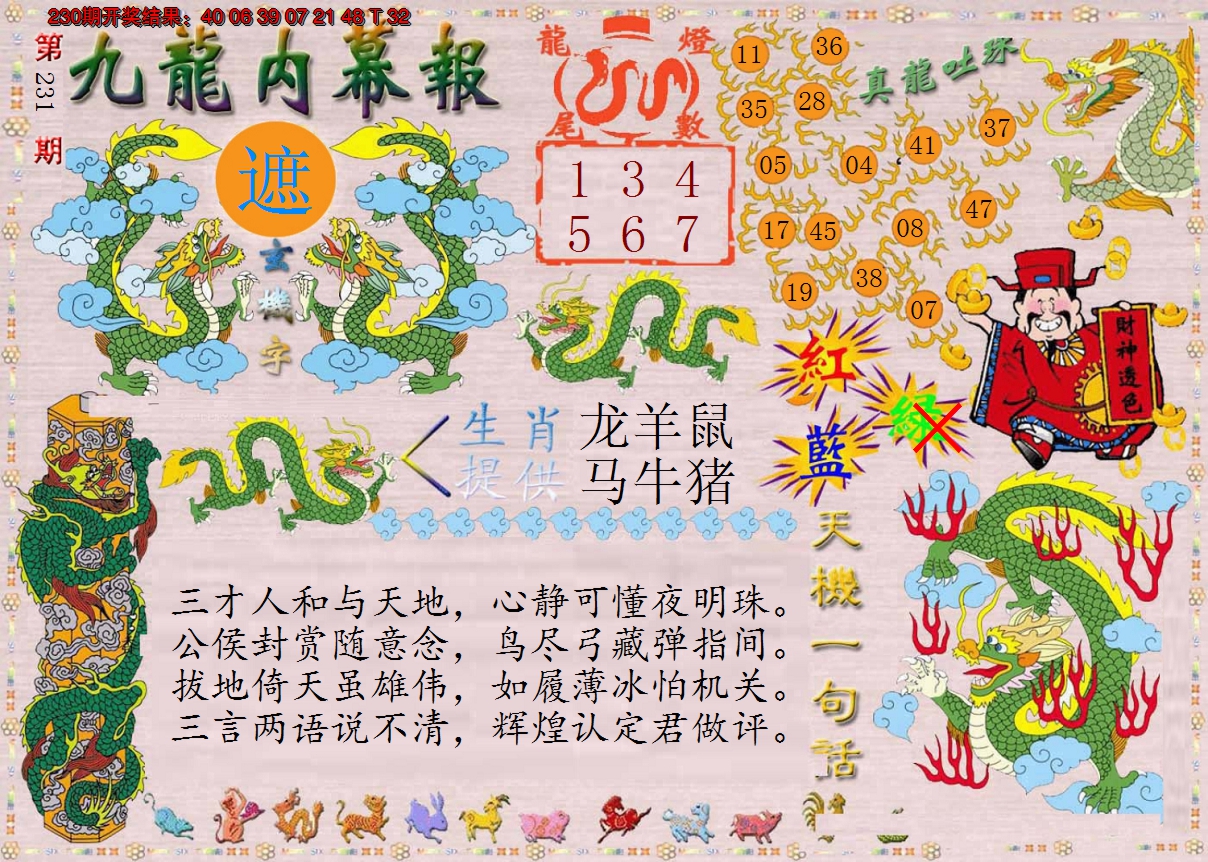 230期开奖结果：40 06 39 07 21 48 T 32
第231期
九龍内幕報
遮
玄機字
龍燈尾數
1 3 4
5 6 7
真龍吐珠
11 36
35 28
05 04 41 37
17 45 08 47
19 38 07
紅
綠
藍
財神透色
生肖 龙羊鼠
提供 马牛猪
天機一句話
三才人和与天地，心静可懂夜明珠。
公侯封赏随意念，鸟尽弓藏弹指间。
拔地倚天虽雄伟，如履薄冰怕机关。
三言两语说不清，辉煌认定君做评。